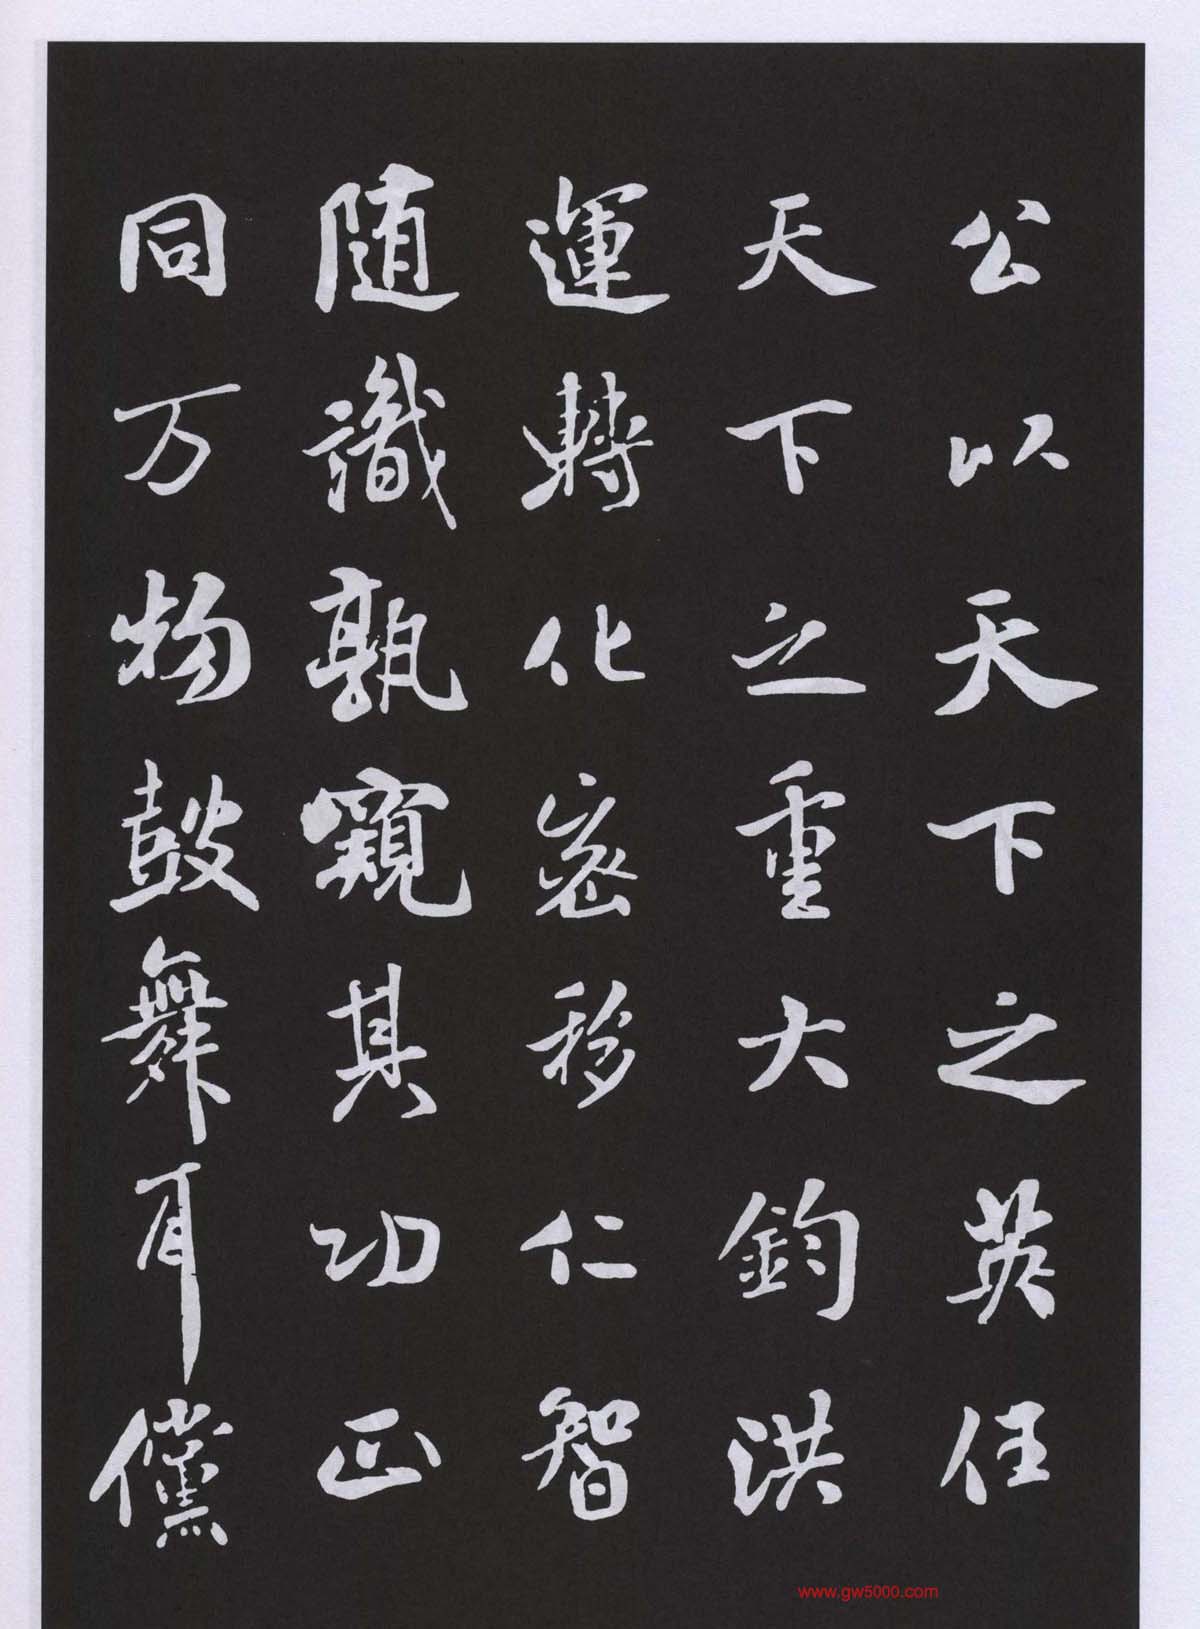 公以天下之英任
天下之重大鈞洪
運轉化密移仁智
隨識孰窺其功正
同万物鼓舞耳儻
www.gw5000.com